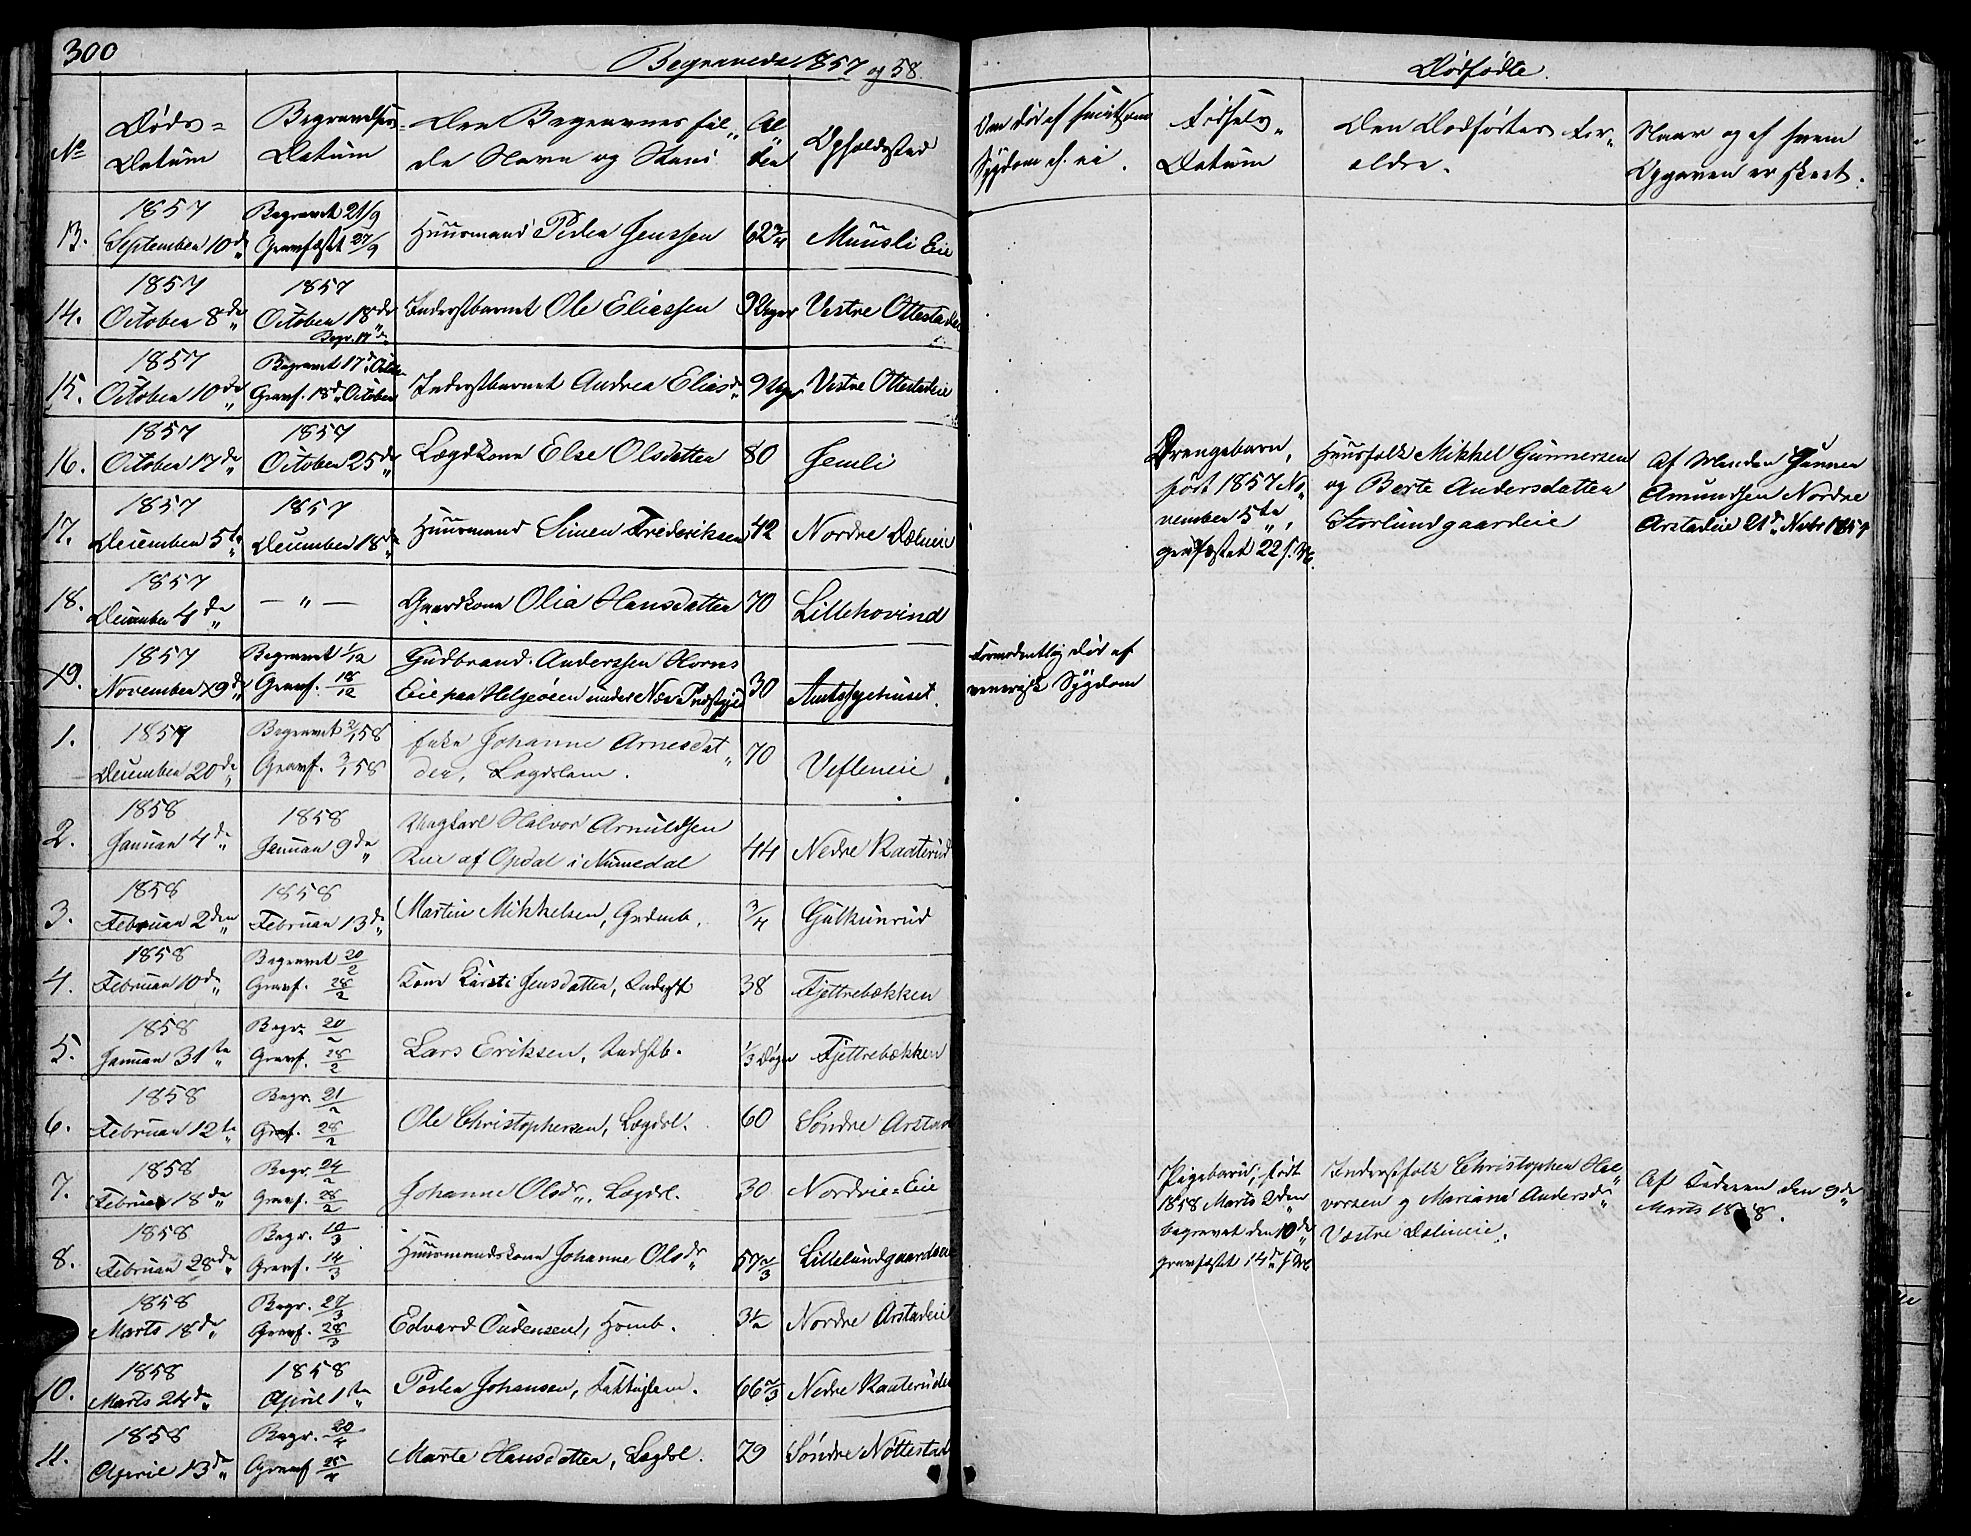 300
Begravede 1857 og 58.
Dødfødte.
No
Døds-
Datum
Begravelses-
Datum
Den Begravnes ful-
de Navn og Stand
Al-
der
Opholdssted
Om død af smitsom
Sygdom el. ei.
Fødsels-
Datum
Den Dødfødtes For-
ældre.
Naar og af hvem
Opgaven er skeet.
13.
1857
September 10de
Begravet 21/9
Gravfæstet 27/9
Huusmand Peder Jenssen
62 3/4
Muusli Eie
14.
1857
October 8de
1857
October 18de
Begr. 17de
Inderstbarnet Ole Eliassen
9 Uger
Vestre Ottestadeie
15.
1857
October 10de
Begravet 17de October
Gravf. 18de October
Inderstbarnet Andrea Eliasdr
9 Uger
Vestre Ottestadeie
16.
1857
October 17de
1857
October 25de
Lægdkone Else Olsdatter
80
Jemli
Drengebarn,
født 1857 No-
vember 5te,
gravfæstet 22 s. M.
Huusfolk Mikkel Gunnersen
og Berte Andersdatter
Storlundgaardeie
Af Manden Gunner
Amundsen Nordre
Arstadeie 21de Nvbr 1857
17.
1857
December 5te
1857
December 18de
Huusmand Simen Frederiksen
42
Nordre Dæleneie
18.
1857
December 4de
— " —
Gaardkone Olia Hansdatter
70
Lillehovind
19.
1857
November 29de
Begravet 1/12
Gravf. 18/12
Gudbrand Anderssen Horns
Eie paa Helgeøen under Næs Præstegjeld
30
Amtssygehuset.
Formodentlig død af
venerisk Sygdom
1.
1857
December 20de
Begravet 2/1 58
Gravf. 3/1 58
Enke Johanne Arnesdat-
der, Lægdslem.
70
Vefleneie
2.
1858
Januar 4de
1858
Januar 9de
Ungkarl Halvor Arnuldsen
Rue af Opdal i Numedal
44
Nedre Kaaterud
3.
1858
Februar 2den
1858
Februar 13de
Martin Mikkelsen, Grdmb.
3/4
Gulkunrud
4.
1858
Februar 10de
Begravet 20/2
Gravf. 28/2
Kone Kirsti Jensdatter, Inderst
38
Fjettrebækken
5.
1858
Januar 31te
Begr. 20/2
Gravf. 28/2
Lars Eriksen, Indstb.
1/3 Døgn
Fjettrebækken
6.
1858
Februar 12te
Begr. 21/2
Gravf. 28/2
Ole Christophersen, Lægdsl.
60
Søndre Arstad
7.
1858
Februar 18de
Begr. 24/2
Gravf. 28/2
Johanne Olsdr, Lægdsl.
30
Nordvie=Eie
Pigebarn, født
1858 Marts 2den
begravet den 10de
gravfæstet 14de s. M.
Inderstfolk Christopher Hal-
vorsen og Mariane Andersdr
Vestre Dæleneie.
Af Faderen den 9de
Marts 1858.
8.
1858
Februar 28de
Begr. 10/3
Gravf. 14/3
Huusmandskone Johanne Olsdr
57 2/3
Lillelundgaardeie
1858
Marts 18de
Begr. 27/3
Gravf. 28/3
Edvard Oudensen, Husmb.
3 1/2
Nordre Arstadeie
10.
1858
Marts 24de
1858
April 1ste
Peder Johansen, Fattiglem.
66 2/3
Nedre Kaaterudeie
11.
1858
April 13de
Begr. 20/4
Gravf. 25/4
Marte Hansdatter, Lægdsl.
79
Søndre Nøttestad